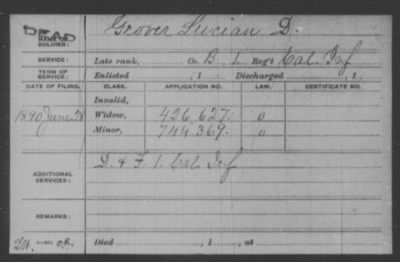 DEAD Grover Lucian D.
SOLDIER:
SERVICE: Late rank, Co. B, 1 Reg't Cal. Inf
TERM OF SERVICE: Enlisted , 1 Discharged , 1
DATE OF FILING. CLASS. APPLICATION NO. LAW. CERTIFICATE NO.
Invalid,
1890 June 28 Widow, 426,627. 0
Minor, 744,369. 0
ADDITIONAL SERVICES: D. & F. 1. Cal. Inf
REMARKS:
Died , 1 , at